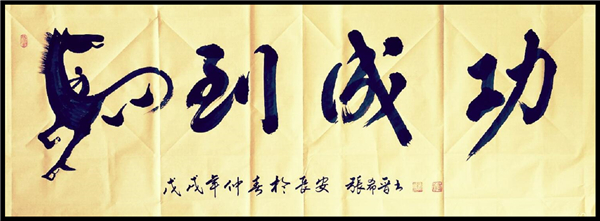 马到成功
戊戌年仲春於長安 張希晋书